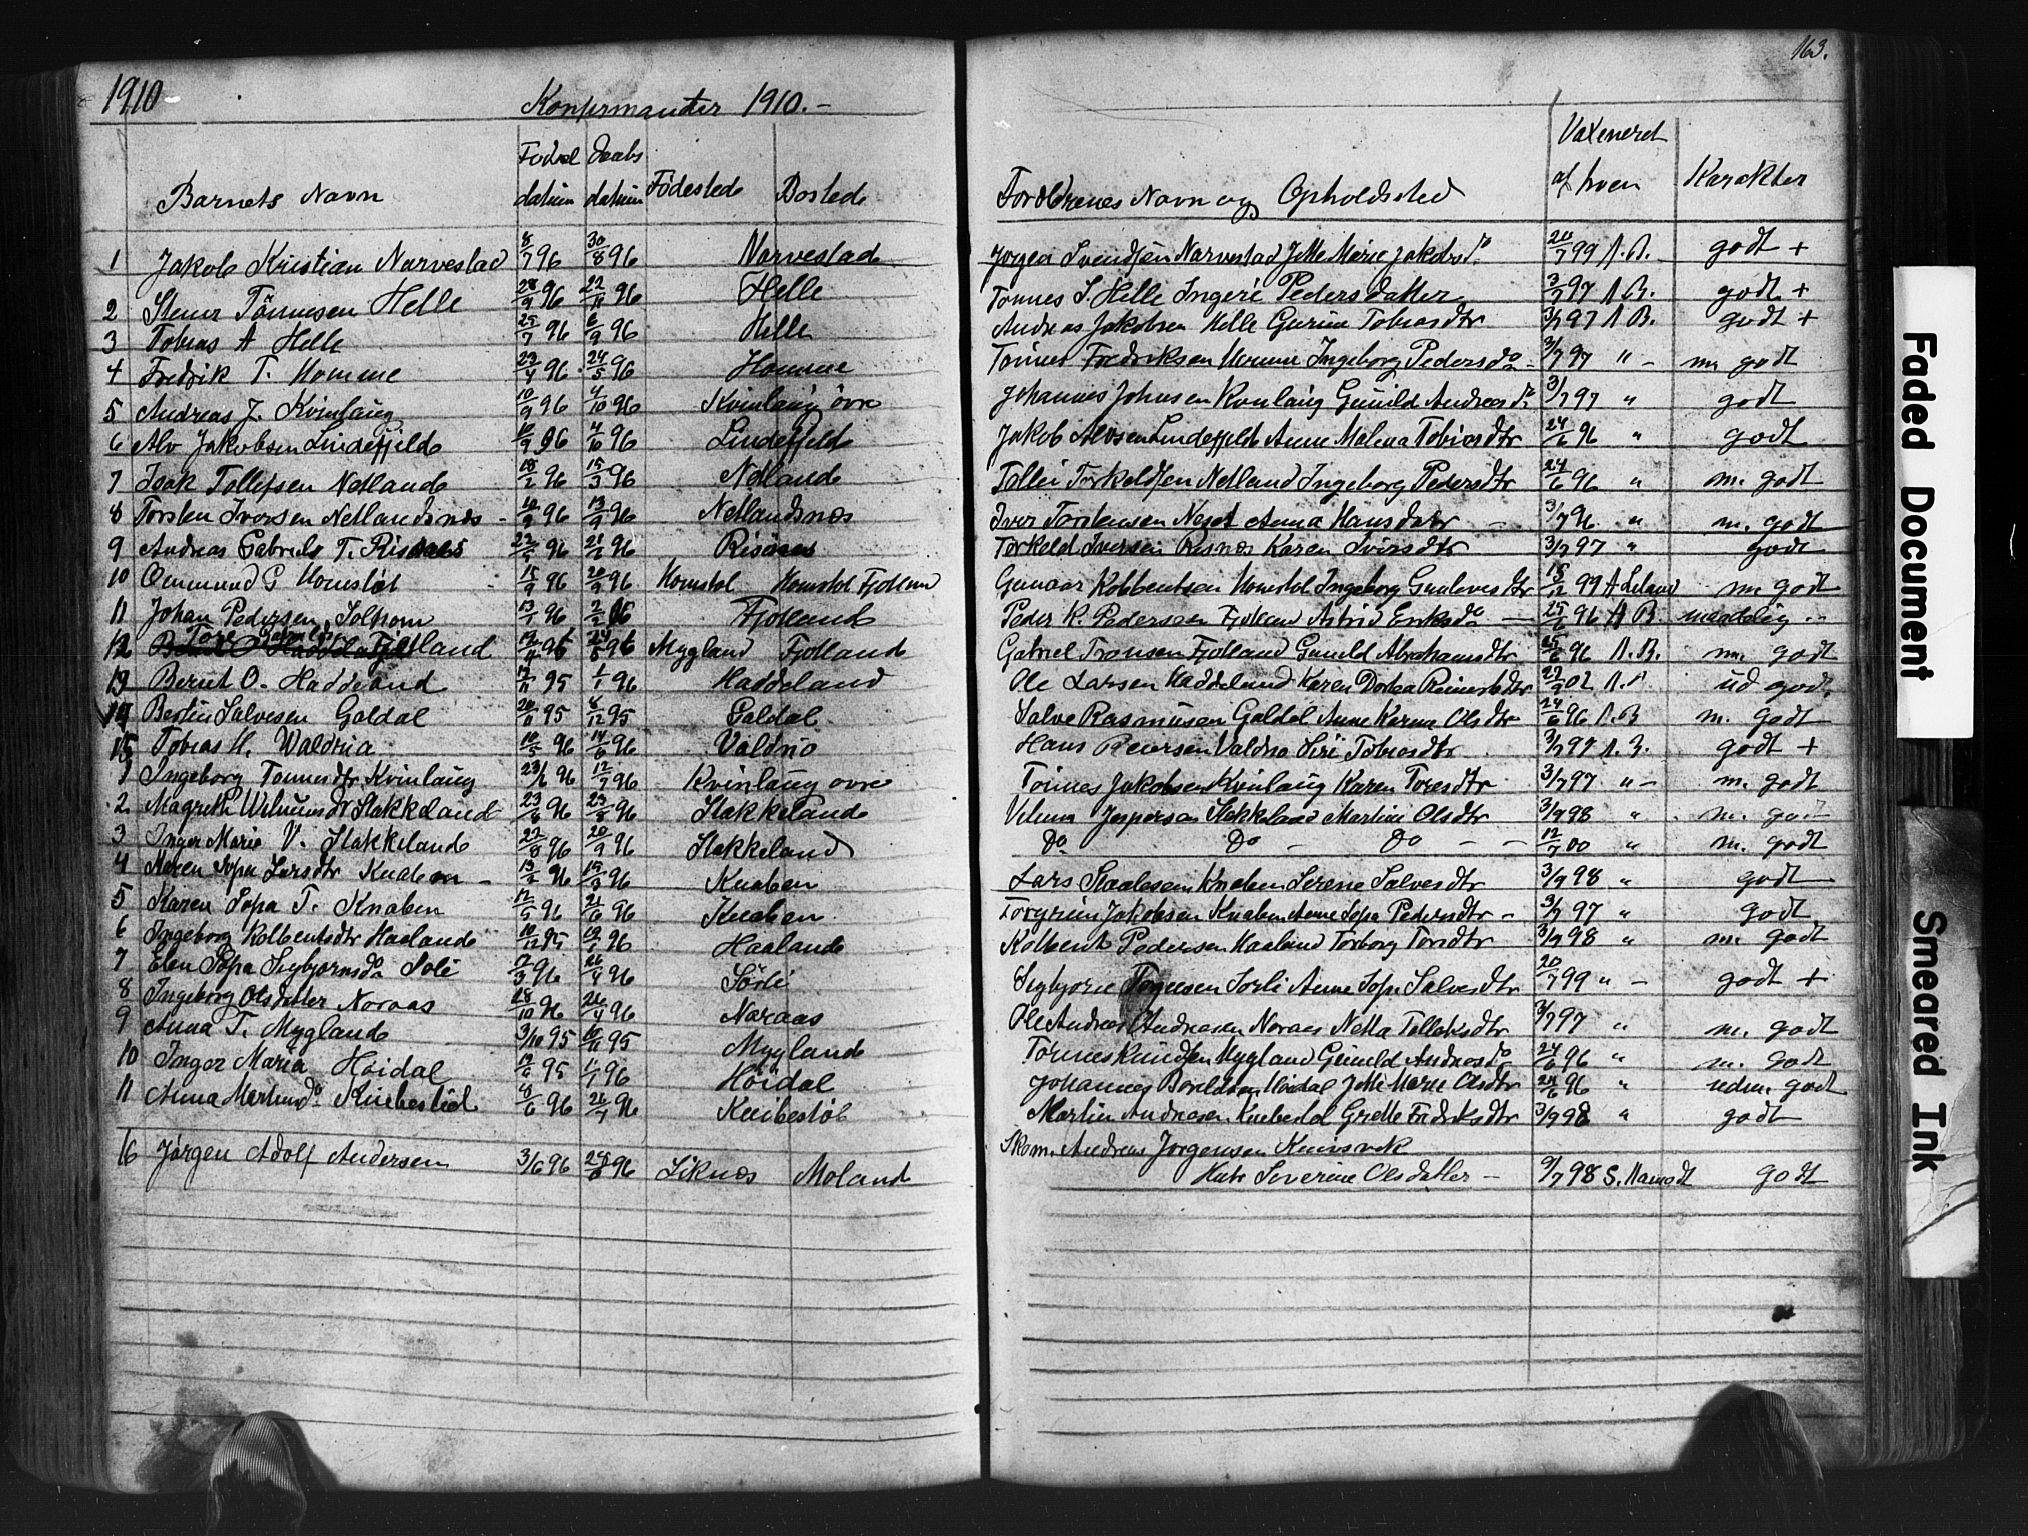 1910
Konfirmanter 1910.-
163.
Barnets Navn Fødsel datum Daabs datum Fødested Bosted Forældrenes Navn og Opholdssted Vaxeneret af hvem Karakter
1 Jakob Kristian Narvestad 8/7 96 30/8 96 Narvestad Jørgen Svendsen Narvestad Jette Marie Jakobsd. 20/7 99 A. B. godt +
2 Tønnesen Helle 28/9 96 22/11 96 Helle Tønnes S. Helle Ingeri Pedersdatter 3/7 97 A B. godt +
3 Tobias A Helle 25/7 96 6/9 96 Helle Andreas Jakobsen Helle Gurine Tobiasdtr 3/7 97 A B. godt +
4 Fredrik T. Homme 23/4 96 24/5 96 Homme Tønnes Fredriksen Homme Ingeborg Pedersdo - 3/7 97 " - m. godt
5 Andreas J. Kvinlaug 10/9 96 4/10 96 Kvinlaug øvre Johannes Johnsen Kvinlaug Gunild Andreasd. 3/7 97 " godt
6 Alv Jakobsen Lindefjeld 10/9 96 4/10 96 Lindefjeld Jakob Alvsen Lindefjeld Anne Malena Tobiasdtr 24/6 96 " godt
7 Isak Tollefsen Netland 18/2 96 15/3 96 Netland Tollei Torkeldsen Netland Ingeborg Pedersdtr 24/6 96 " m. godt
8 Torsten Iversen Netlandsnes - 96 13/9 96 Netlandsnæs Iver Torstensen Neset Anna Hansdatr - 3/7 96 " m. godt
9 Andreas Gabriels T. Risnes 96 96 Risnes Torkeld Iversen Risnæs Karen Iversdtr 3/7 97 " godt
10 Ommund G Homstøl 15/9 96 20/9 96 Homstøl Homstøl Fjotland Gunnar Kolbentsen Homstøl Ingeborg Gunlevesdtr 15/12 99 A Leland m. godt
11 Johan Pedersen Solhom 13/1 96 2/2 96 Fjotland Peder K. Pedersen Fjotland Astrid Eriksdo - 25/6 96 A B. maadelig
12 Tore Gabriels Fjotland 96 96 Mygland Fjotland Gabriel Tronsen Fjotland Gunild Abrahamsdtr 25/6 96 A. B. m. godt
13 Bernt O. Haddeland 12/11 95 1/1 96 Haddeland Ole Larsen Haddeland Karen Dortea Reinertsdtr 02 A. ud godt
14 Bertin Salvesen Galdal 20/11 95 8/12 95 Galdal Salve Rasmusen Galdal Anne Karine Olsdtr 24/6 96 A. B m. godt
15 Tobias H. Waldria 10/5 96 14/6 96 Valdrio Hans Reiersen Siri Tobiasdtr 3/7 97 A. B. godt +
1 Ingeborg Tønnesdtr Kvinlaug 23/6 96 12/7 96 Kvinlaug øvre Tønnes Jakobsen Kvinlaug Karen Toresdtr 3/7 97 " - m. godt
2 Magrethe Stakkeland 23/6 96 96 Stakkeland Jespersen Stakkeland Martine Olsdtr 3/7 98 " m. godt
3 Inger Marie V. Stakkeland 22/8 96 20/9 96 Stakkeland Do Do - Do - - 12/7 00 " m. godt
4 Maren Sofia Larsdtr Knaben - 13/2 96 15/3 96 Knaben Lars Staalesen Knaben Serene Salvesdtr 3/7 98 " godt
5 Karen Sofia T. Knaben 12/5 96 21/6 96 Knaben Torgrim Jakobsen Knaben Anne Sofia Pedersdtr - 3/7 97 " godt
6 Ingeborg Kolbentsdtr Haaland 10/12 95 19/1 96 Haaland Kolbent Pedersen Haaland Torborg Toresdtr 3/7 98 " m. godt
7 Elen Sofia Sigbjørnsdo Soli 3 96 26/4 96 Sørli Sigbjørn Sorli Anne Sofi Salvesdtr 20/7 99 " - godt +
8 Ingeborg Olsdatter Noraas 28/10 96 26/4 96 Naraas Ole Andreas Andreasen Noraas Netta Tollaksdtr 3/7 97 " m. godt
9 Anna T. Mygland 3/10 95 10/11 95 Mygland Tønnes Knudsen Mygland Gunild Andreasdo 24/6 96 " m. godt
10 Inger Maria Høidal 95 1/1 96 Høidal Johannes Høidal Jette Marie Olsdtr 24/6 96 " udm. godt
11 Anna Martinsdo Knibestøl 8/6 96 26/7 96 Knibestøl Martin Andreasen Knibestøl Grette Fredriksdtr 3/7 98 " godt
16 Jørgen Adolf Andersen 3/6 96 96 Liknæs Moland Skom. Andreas Jørgensen
Severine Olsdatter - 9/7 98 S. godt
Faded Document
Smeared Ink